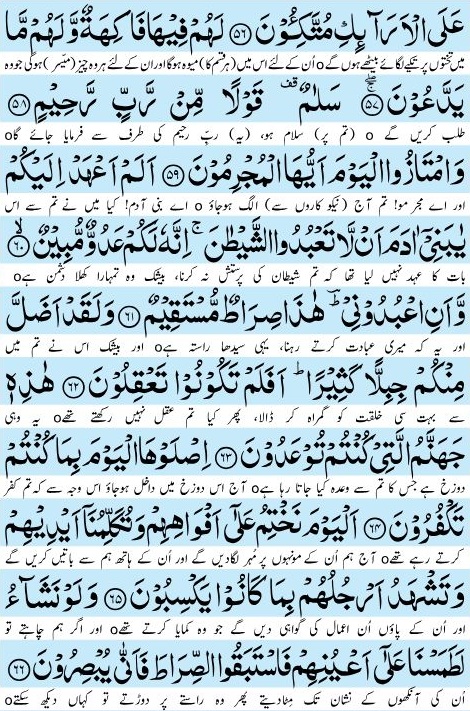 عَلَى الۡاَرَآئِكِ مُتَّكِـُٔوۡنَ ۝۵۶ لَهُمۡ فِيۡهَا فَاكِهَةٌ وَّلَهُمۡ مَّا
میں تختوں پر تکیے لگائے بیٹھے ہوں گے o اُن کے لئے اس میں (ہر قسم کا) میوہ ہوگا اور ان کے لئے ہر وہ چیز (میسّر) ہوگی جو وہ
يَدَّعُوۡنَ ۝۵۷ۚۖ سَلٰمٌ ࣞ قَوۡلًا مِّنۡ رَّبٍّ رَّحِيۡمٍ ۝۵۸
طلب کریں گے o (تم پر) سلام ہو، (یہ) ربِّ رحیم کی طرف سے فرمایا جائے گا o
وَامۡتَازُوا الۡيَوۡمَ اَيُّهَا الۡمُجۡرِمُوۡنَ ۝۵۹ اَلَمۡ اَعۡهَدۡ اِلَيۡكُمۡ
اور اے مجرمو! تم آج (نیکو کاروں سے) الگ ہو جاؤ o اے بنی آدم! کیا میں نے تم سے اس
يٰبَنِىۡۤ اٰدَمَ اَنۡ لَّا تَعۡبُدُوا الشَّيۡطٰنَ ۚ اِنَّهٗ لَكُمۡ عَدُوٌّ مُّبِيۡنٌ ۝۶۰ۙ
بات کا عہد نہیں لیا تھا کہ تم شیطان کی پرستش نہ کرنا، بیشک وہ تمہارا کھلا دشمن ہے o
وَّاَنِ اعۡبُدُوۡنِىۡ ؔؕ هٰذَا صِرَاطٌ مُّسۡتَقِيۡمٌ ۝۶۱ وَلَقَدۡ اَضَلَّ
اور یہ کہ میری عبادت کرتے رہنا، یہی سیدھا راستہ ہے o اور بیشک اس نے تم میں
مِنۡكُمۡ جِبِلًّا كَثِيۡرًا ؕ اَفَلَمۡ تَكُوۡنُوۡا تَعۡقِلُوۡنَ ۝۶۲ هٰذِهٖ
سے بہت سی خلقت کو گمراہ کر ڈالا، پھر کیا تم عقل نہیں رکھتے تھے o یہ وہی
جَهَنَّمُ الَّتِىۡ كُنۡتُمۡ تُوۡعَدُوۡنَ ۝۶۳ اِصۡلَوۡهَا الۡيَوۡمَ بِمَا كُنۡتُمۡ
دوزخ ہے جس کا تم سے وعدہ کیا جاتا رہا ہے o آج اس دوزخ میں داخل ہو جاؤ اس وجہ سے کہ تم کفر
تَكۡفُرُوۡنَ ۝۶۴ اَلۡيَوۡمَ نَخۡتِمُ عَلٰٓى اَفۡوَاهِهِمۡ وَتُكَلِّمُنَاۤ اَيۡدِيۡهِمۡ
کرتے رہے تھے o آج ہم اُن کے مونہوں پر مُہر لگا دیں گے اور اُن کے ہاتھ ہم سے باتیں کریں گے
وَتَشۡهَدُ اَرۡجُلُهُمۡ بِمَا كَانُوۡا يَكۡسِبُوۡنَ ۝۶۵ وَلَوۡ نَشَآءُ
اور اُن کے پاؤں اُن اعمال کی گواہی دیں گے جو وہ کمایا کرتے تھے o اور اگر ہم چاہتے تو
لَطَمَسۡنَا عَلٰٓى اَعۡيُنِهِمۡ فَاسۡتَبَقُوا الصِّرَاطَ فَاَنّٰى يُبۡصِرُوۡنَ ۝۶۶
اُن کی آنکھوں کے نشان تک مِٹا دیتے پھر وہ راستے پر دوڑتے تو کہاں دیکھ سکتے o